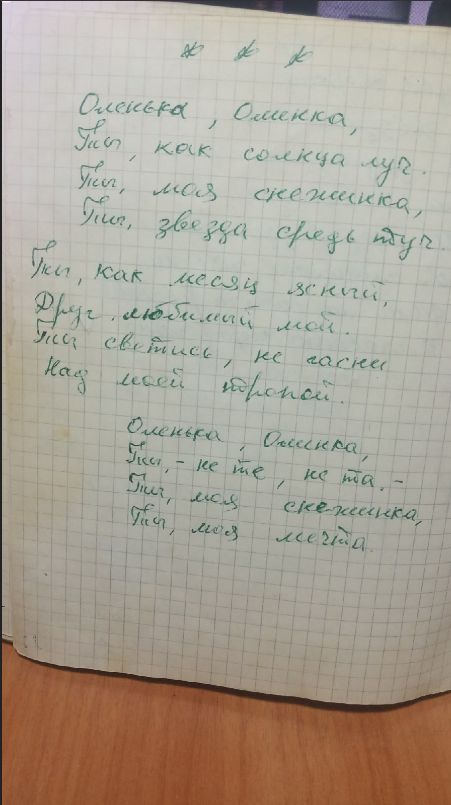 * * *
Оленька, Олинка,
Ты, как солнца луч.
Ты, моя снежинка,
Ты, звезда средь туч.
Ты, как месяц ясный,
Друг любимый мой.
Ты светись, не гасни
Над моей тропой.
Оленька, Олинка,
Ты, - не те, не та, -
Ты, моя снежинка,
Ты, моя мечта.